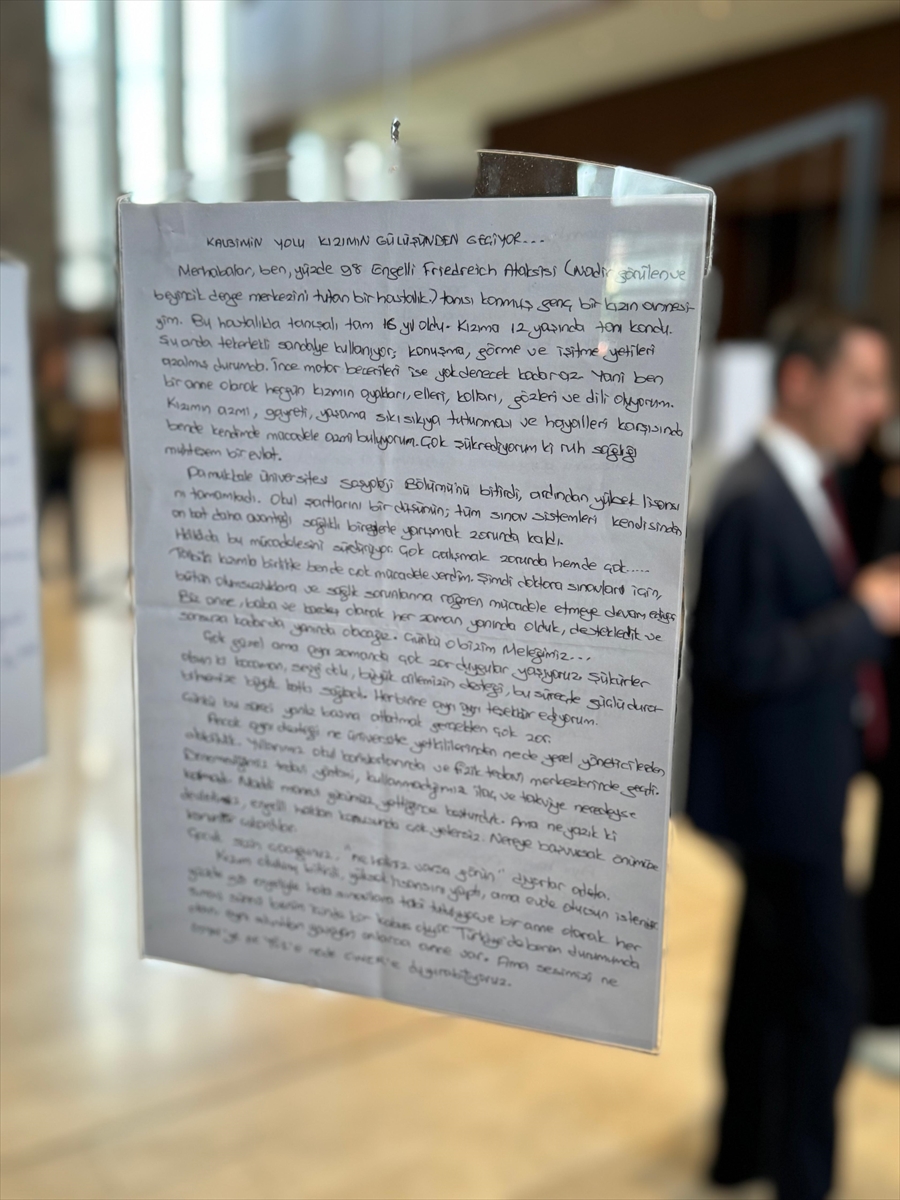 KALBİMİN YOLU KIZIMIN GÜLÜŞÜNDEN GEÇİYOR...
Merhabalar, ben, yüzde 98 Engelli Friedreich Ataksisi (Nadir görülen ve
beyincik denge merkezini tutan bir hastalık.) tanısı konmuş genç bir kızın annesi-
yim. Bu hastalıkla tanışalı tam 16 yıl oldu. Kızıma 12 yaşında tanı kondu.
Şu anda tekerlekli sandalye kullanıyor; konuşma, görme ve işitme yetileri
azalmış durumda. İnce motor becerileri ise yok denecek kadar az. Yani ben
bir anne olarak hergün kızımın ayakları, elleri, kolları, gözleri ve dili oluyorum.
Kızımın azmi, gayreti, yaşama sıkı sıkıya tutunması ve hayalleri karşısında
bende kendimde mücadele azmi buluyorum. Çok şükrediyorum ki ruh sağlığı
muhteşem bir evlat.
Pamukkale üniversitesi Sosyoloji Bölümü'nü bitirdi, ardından yüksek lisansı
nı tamamladı. Okul şartlarını bir düşünün; tüm sınav sistemleri kendisinden
on kat daha avantajlı sağlıklı bireylerle yarışmak zorunda kaldı.
Halâda bu mücadelesini sürdürüyor. Çok çalışmak zorunda hemde çok....
Tabiki kızımla birlikte bende çok mücadele verdim. Şimdi doktora sınavları için,
bütün olumsuzluklara ve sağlık sorunlarına rağmen mücadele etmeye devam ediyor
Biz anne, baba ve kardeş olarak her zaman yanında olduk, destekledik ve
sonsuza kadarda yanında olacağız. Çünkü o bizim Meleğimiz...
Çok güzel ama aynı zamanda çok zor duygular yaşıyoruz. Şükürler
olsun ki kocaman, sevgi dolu, büyük ailemizin desteği, bu süreçte güçlü dura-
bilmemize büyük katkı sağladı. Herbirine ayrı ayrı teşekkür ediyorum.
Çünkü bu süreci yanlız başına atlatmak gerçekten çok zor.
Ancak aynı desteği ne üniversite yetkililerinden nede yerel yöneticilerden
alabildik. Yıllarımız okul koridorlarında ve fizik tedavi merkezlerinde geçti.
Denemediğimiz tedavi yöntemi, kullanmadığımız ilaç ve takviye neredeyse
kalmadı. Maddi manevi gücümüz yettiğince koşturduk. Ama ne yazık ki
devletimiz, engelli hakları konusunda çok yetersiz. Nereye başvursak önümüze
kanunlar çıkarıldılar.
Çocuk sizin çocuğunuz, "ne haliniz varsa görün" diyorlar adeta.
Kızım okulunu bitirdi, yüksek lisansını yaptı, ama evde otursun isteniyor
yüzde 98 engeliyle hala sınavlara tabi tutuluyor ve bir anne olarak her
sınav süreci benim içinde bir kabus oluyor. Türkiye'de benim durumumda
olan aynı sıkıntıları yaşayan onlarca anne var. Ama sesimizi ne
ne YÖK'e nede CİMER'e duyurabiliyoruz.